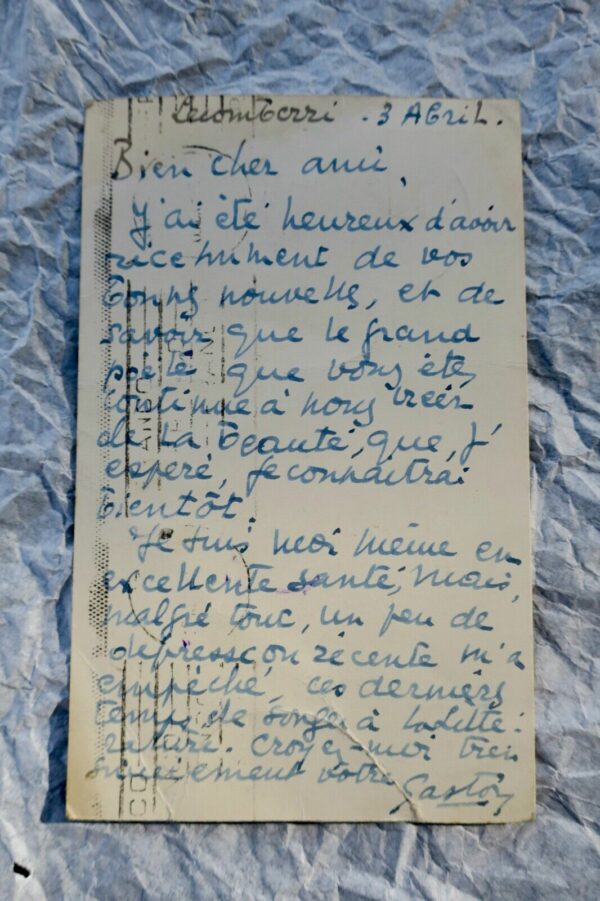 3 Abril.
Bien cher ami,
J'ai été heureux d'avoir
récemment de vos
bonnes nouvelles, et de
savoir que le grand
poète que vous êtes
continue à nous créer
de la beauté, que, j'
espère, je connaîtrai
bientôt.
Je suis moi même en
excellente santé, mais,
malgré tout, un peu de
dépression récente m'a
empêché, ces derniers
temps de songer à la litté-
rature. Croyez-moi très
sincèrement vôtre
Gaston